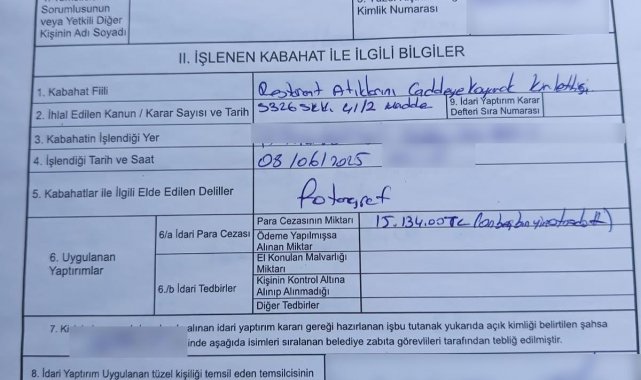 Sorumlusunun
veya Yetkili Diğer
Kişinin Adı Soyadı
Kimlik Numarası
II. İŞLENEN KABAHAT İLE İLGİLİ BİLGİLER
1. Kabahat Fiili
Restorant Atıklarını Caddeye Koyarak Kirlettiği
2. İhlal Edilen Kanun / Karar Sayısı ve Tarih
5326 SKK. 41/2 Madde
9. İdari Yaptırım Karar
Defteri Sıra Numarası
3. Kabahatin İşlendiği Yer
4. İşlendiği Tarih ve Saat
08/06/2025
5. Kabahatlar ile İlgili Elde Edilen Deliller
Fotoğraf
6. Uygulanan
Yaptırımlar
6/a İdari Para Cezası
Para Cezasının Miktarı
15.134.00 TL
Ödeme Yapılmışsa
Alınan Miktar
6./b İdari Tedbirler
El Konulan Malvarlığı
Miktarı
Kişinin Kontrol Altına
Alınıp Alınmadığı
Diğer Tedbirler
alınan idari yaptırım kararı gereği hazırlanan işbu tutanak yukarıda açık kimliği belirtilen şahsa
inde aşağıda isimleri sıralanan belediye zabıta görevlileri tarafından tebliğ edilmiştir.
8. İdari Yaptırım Uygulanan tüzel kişiliği temsil eden temsilcisinin